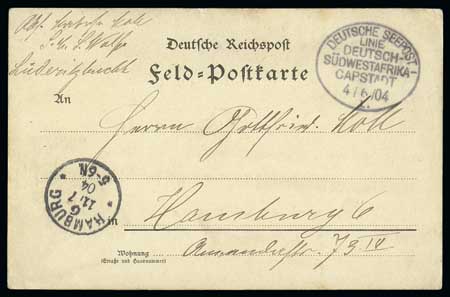 Abs.
S. M. S. Wolf
Lüderitzbucht
Deutsche Reichspost
Feld-Postkarte
DEUTSCHE SEEPOST
LINIE
DEUTSCH-
SÜDWESTAFRIKA-
CAPSTADT
4/6/04
An
Herrn Gottfried Koll
HAMBURG
11/7
04
5-6N.
in
Hamburg 6
Wohnung
(Straße und Hausnummer)
79 IV